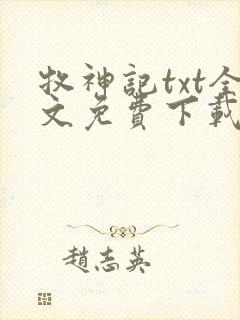 牧神記txt全
文免費下載
趙志英